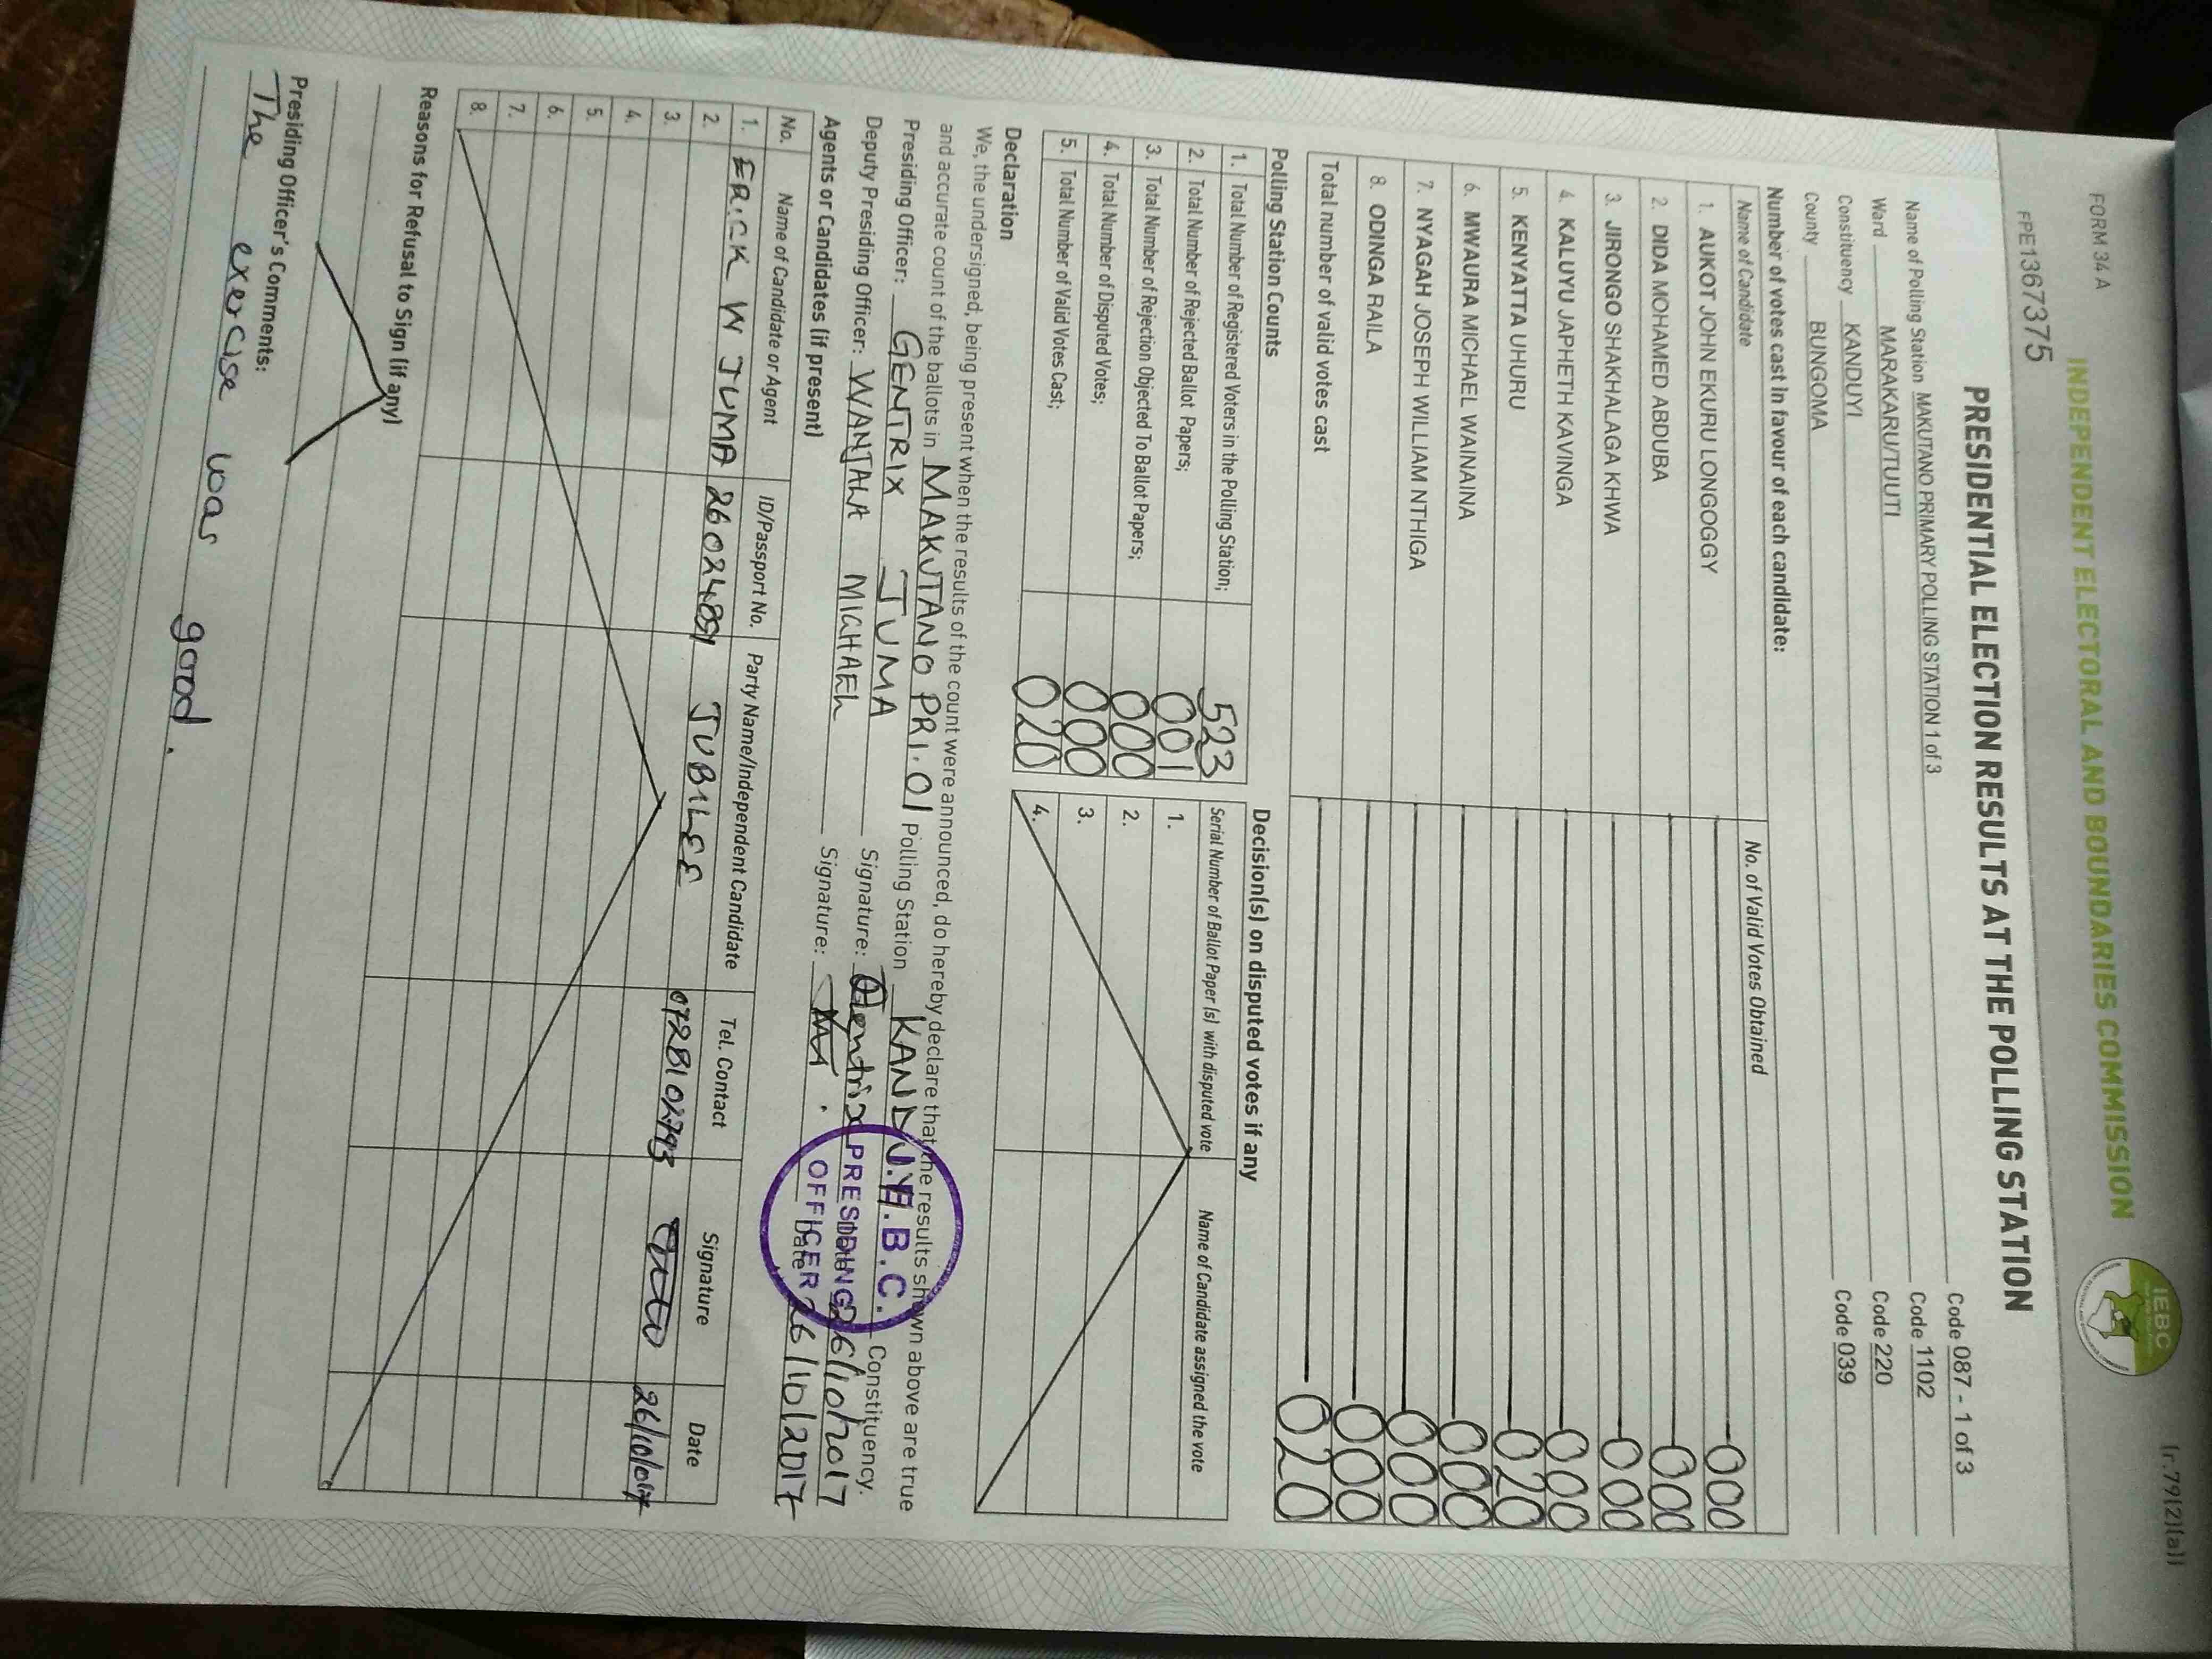 FORM 34 A
(r.79(2)(a))
INDEPENDENT ELECTORAL AND BOUNDARIES COMMISSION
IEBC
FPE1367375
PRESIDENTIAL ELECTION RESULTS AT THE POLLING STATION
Name of Polling Station MAKUTANO PRIMARY POLLING STATION 1 of 3 Code 087 - 1 of 3
Ward MARAKARU/TUUTI Code 1102
Constituency KANDUYI Code 220
County BUNGOMA Code 039
Number of votes cast in favour of each candidate:
Name of Candidate No. of Valid Votes Obtained
1. AUKOT JOHN EKURU LONGOGGY 000
2. DIDA MOHAMED ABDUBA 000
3. JIRONGO SHAKHALAGA KHWA 000
4. KALUYU JAPHETH KAVINGA 000
5. KENYATTA UHURU 020
6. MWAURA MICHAEL WAINAINA 000
7. NYAGAH JOSEPH WILLIAM NTHIGA 000
8. ODINGA RAILA 000
Total number of valid votes cast 020
Polling Station Counts
1. Total Number of Registered Voters in the Polling Station; 523
2. Total Number of Rejected Ballot Papers; 001
3. Total Number of Rejection Objected To Ballot Papers; 000
4. Total Number of Disputed Votes; 000
5. Total Number of Valid Votes Cast; 020
Decision(s) on disputed votes if any
Serial Number of Ballot Paper (s) with disputed vote Name of Candidate assigned the vote
1.
2.
3.
4.
Declaration
We, the undersigned, being present when the results of the count were announced, do hereby declare that the results shown above are true
and accurate count of the ballots in MAKUTANO PRI. 01 Polling Station KANDUYI Constituency.
Presiding Officer: GENTRIX JUMA Signature: Gentrix Date 26/10/2017
Deputy Presiding Officer: WANJALA MICHAEL Signature: Date 26/10/2017
I.E.B.C.
PRESIDING
OFFICER
Agents or Candidates (if present)
No. Name of Candidate or Agent ID/Passport No. Party Name/Independent Candidate Tel. Contact Signature Date
1. ERICK W JUMA JUBILEE 0728102793
2.
3.
4.
5.
6.
7.
8.
Reasons for Refusal to Sign (if any)
Presiding Officer's Comments:
The exercise was good.